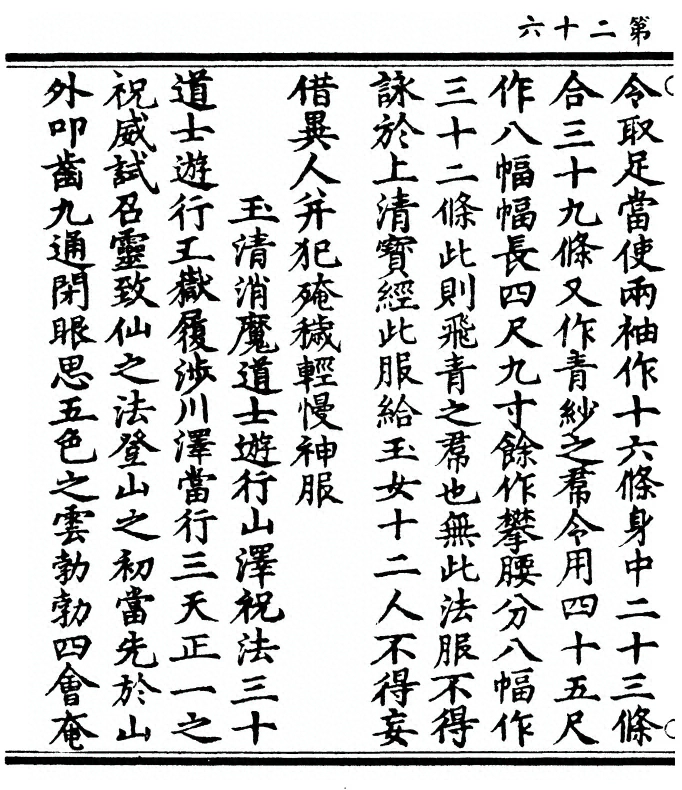 第二十六
令取足當使兩袖作十六條身中二十三條
合三十九條又作青紗之帬令用四十五尺
作八幅幅長四尺九寸餘作攀腰分八幅作
三十二條此則飛青之帬也無此法服不得
詠於上清寶經此服給玉女十二人不得妄
借異人并犯殗穢輕慢神服
玉清消魔道士遊行山澤祝法三十
道士遊行五嶽履涉川澤當行三天正一之
祝威試召靈致仙之法登山之初當先於山
外叩齒九通閉眼思五色之雲勃勃四會奄